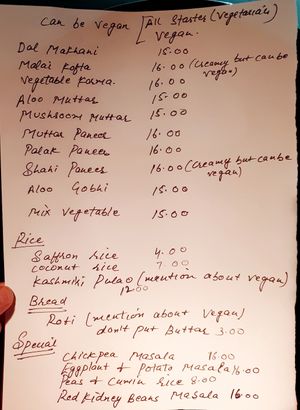 Can be vegan [All Starter (Vegetarian)
Vegan.
Dal Makhani 15.00
Malai Kofta 16.00 (Creamy but can be
vegan)
Vegetable Korma. 16.00
Aloo Muttar 15.00
Mushroom Muttar 15.00
Muttar Paneer 16.00
Palak Paneer 16.00
Shahi Paneer 16.00 (Creamy but can be
vegan)
Aloo Gobhi 15.00
Mix Vegetable 15.00
Rice
Saffron rice 4.00
coconut rice 7.00
Kashmiri Pulao (mention about vegan)
12.00
Bread
Roti (mention about vegan)
don't put Butter 3.00
Special
Chickpea Masala 16.00
Eggplant & Potato Masala 16.00
Peas & Cumin rice 8.00
Red Kidney Beans Masala 16.00